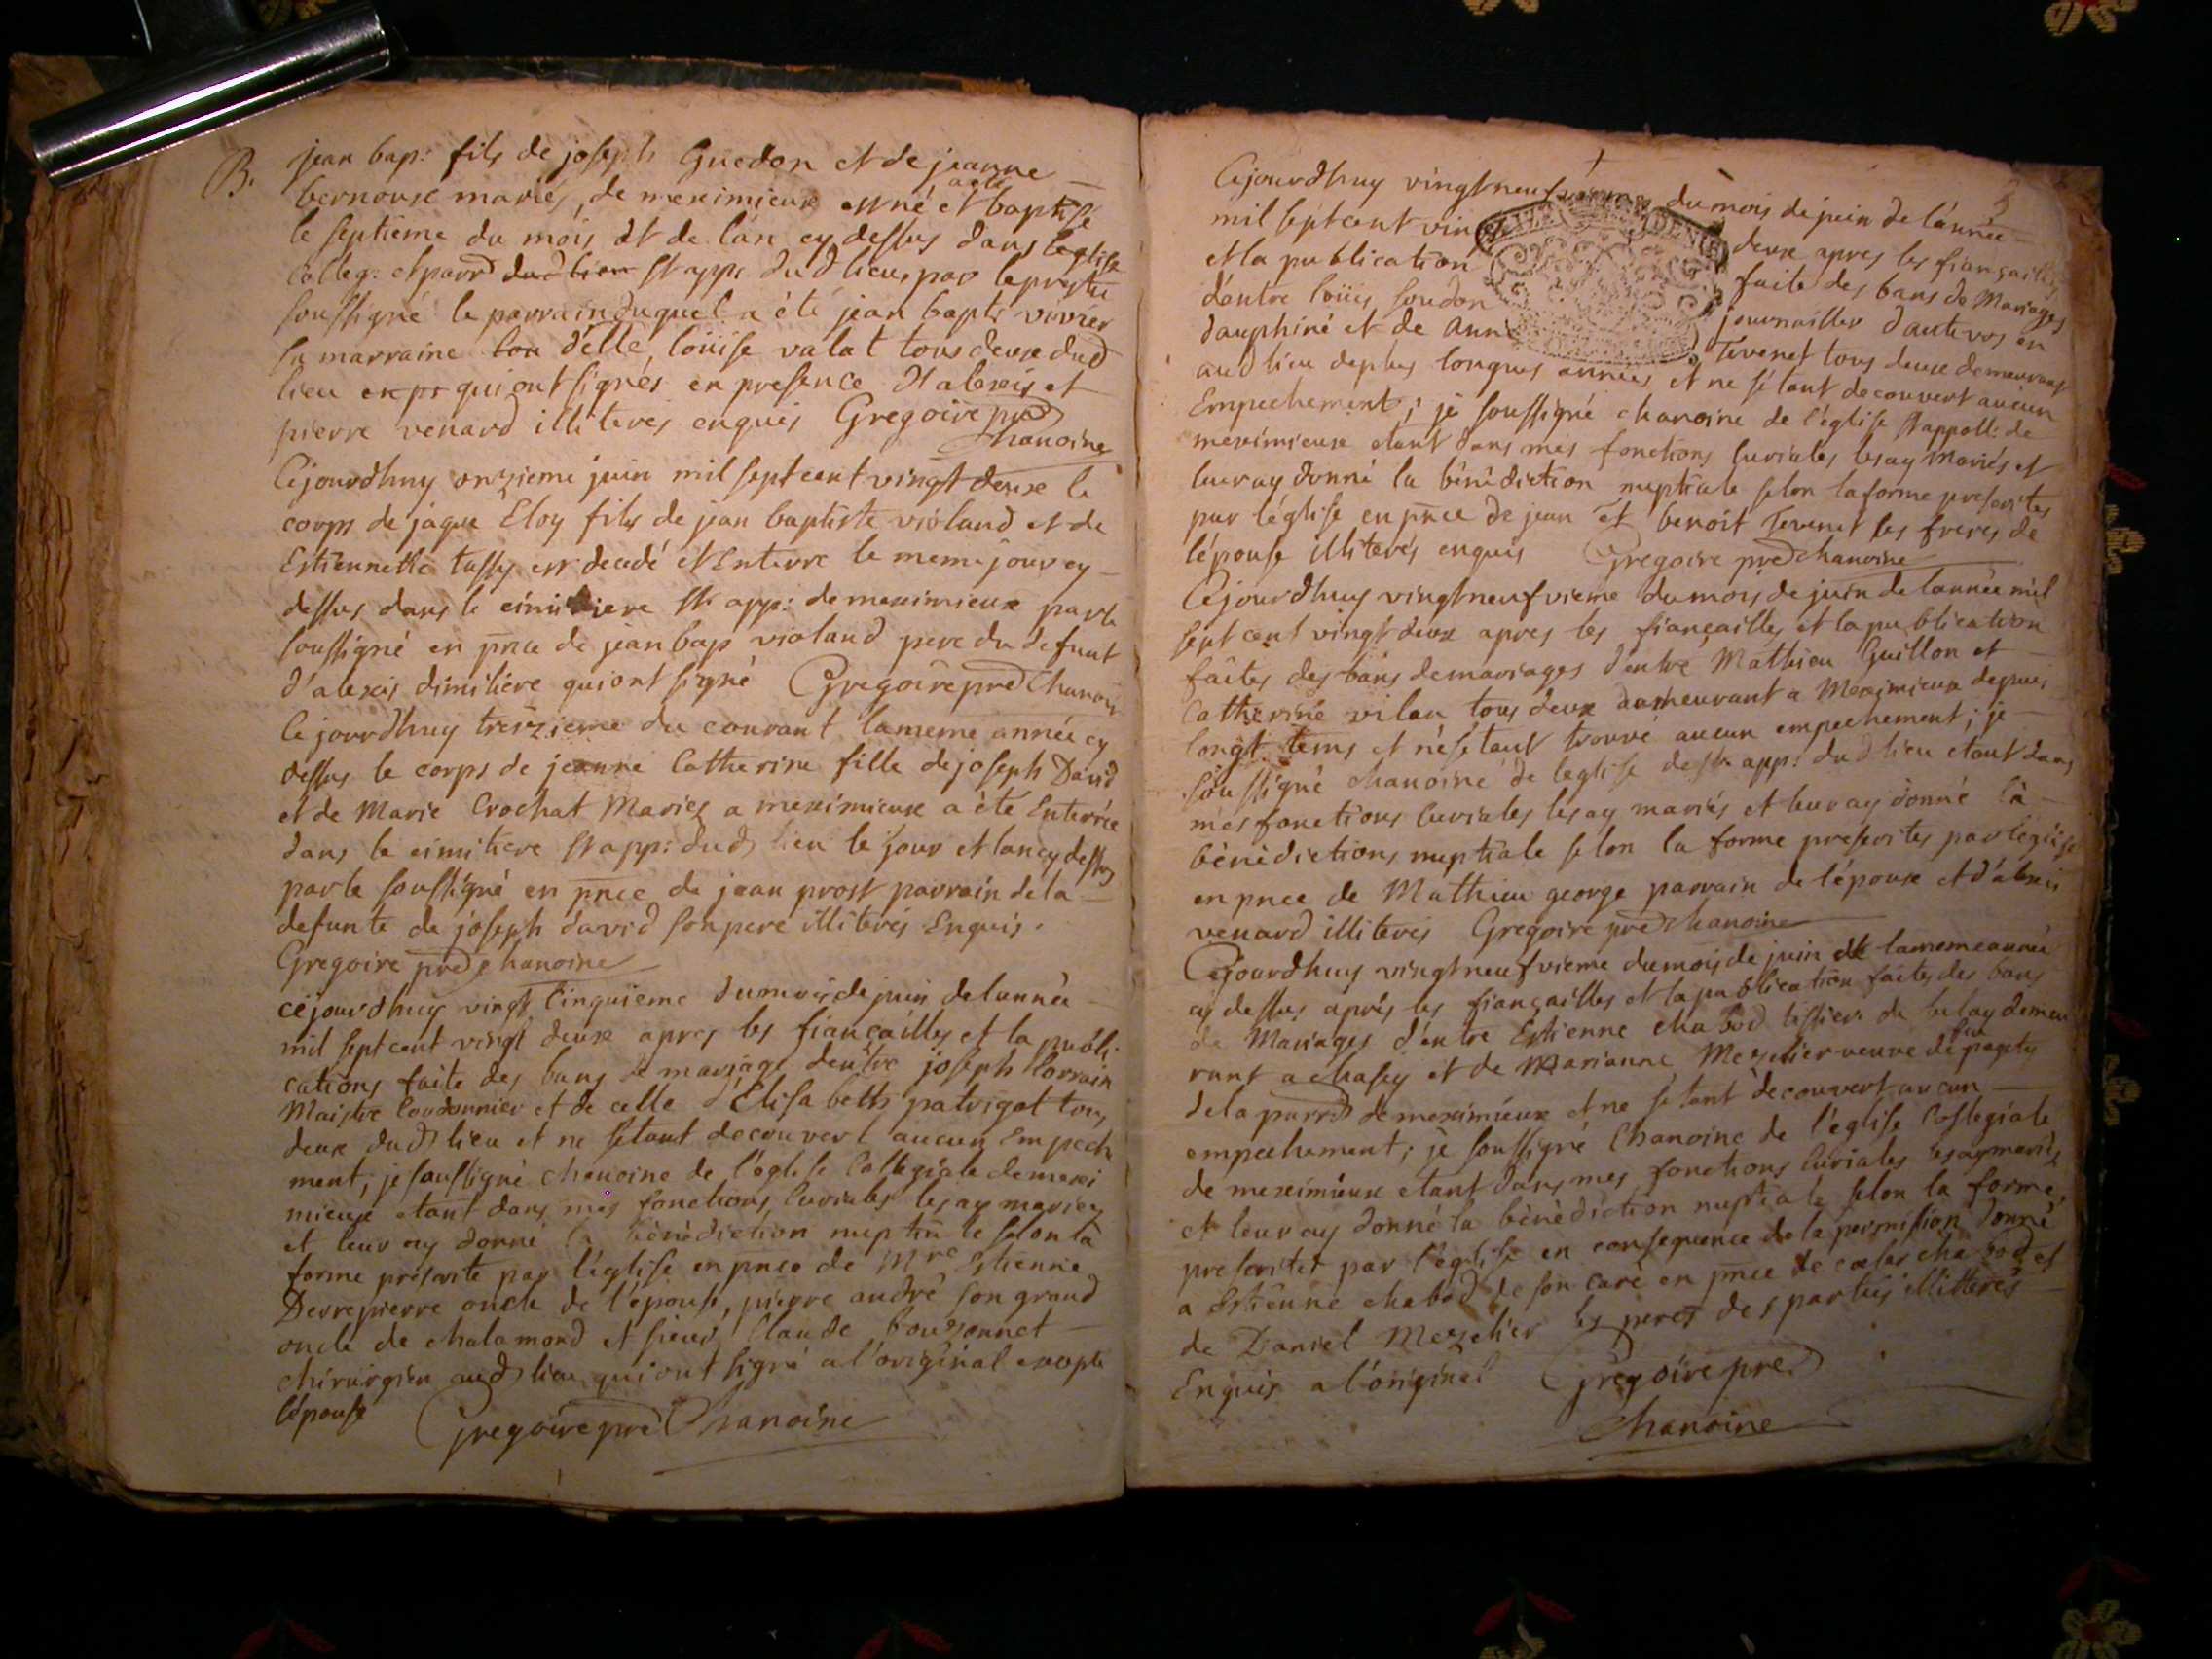 B.
jean bap: fils de joseph Guedon et de jeanne
bernoux mariés, de meximieux est né et a été baptisé
le septieme du mois et de l'an cy dessus dans l'eglise
colleg: et parrd dud lieu St app: dud lieu par le prestre
soussigné le parrain duquel a été jean bapt: vivier
sa marraine lou d'elle, loüise valat tous deux dud
lieu expr qui ont signés en presence d'alexis et
pierre venard illiterés enquis Gregoire pred
Chanoine
Cejourdhuy onzieme juin mil sept cent vingt deux le
corps de jaque Eloy fils de jean baptiste violand et de
Estiennette tassy est decedé et Enterre le meme jour cy
dessus dans le cimitiere St app: de meximieux par le
soussigné en pnce de jean bap violand pere du defunt
d'alexis dimiliere qui ont signé Gregoire pred Chanoin
Cejourdhuy treizieme du courant la meme année cy
dessus le corps de jeanne Catherine fille de joseph David
et de Marie Crochat Mariez a meximieux a été Enterrée
dans le cimitiere St app: dud lieu le jour et lan cy dessus
par le soussigné en pnce de jean prost parrain de la
defunte de joseph david son pere illiterés Enquis.
Gregoire pred chanoine
cejourdhuy vingt Cinquieme du mois de juin de lannée
mil sept cent vingt deux apres les fiançailles et la publi
cations faite des bans de mariage dentre joseph Lorrain
Maistre Cordonnier et de celle d'Elisabeth patrigot tous
deux dud lieu et ne setant decouvert aucun Empech
ment, je soussigné chanoine de l'eglise Collegiale de mexi
mieux etant dans mes fonctions Curiales les ay mariez
et leur ay donné la bénédiction nuptiale selon la
forme préscrite par l'église en pnce de Mre Estienne
Derrepierre oncle de l'épouse, pierre andré son grand
oncle de chalamond et sieur Claude bouzonnet
chirurgien aud lieu qui ont signé a l'original excepté
lépouse Gregoire pred Chanoine
Cejourdhuy vingt neufvieme du mois de juin de l'année
mil sept cent vin deux apres les fiançailles
et la publication faite des bans de Mariages
d'entre loüis soudon journaillier d'autevos en
dauphiné et de Ann Tevenet tous deux demeurant
aud lieu depuis longues années et ne sétant decouvert aucun
Empechement; je soussigné chanoine de l'église St appoll: de
meximieux etant dans mes fonctions Curiales les ay mariés et
leur ay donné la bénédiction nuptiale selon la forme prescrites
par léglise en pnce de jean et benoit Tevenet les freres de
lépouse illiterés enquis Gregoire pred chanoine
Cejourdhuy vingt neufvieme du mois de juin de lannée mil
sept cent vingt deux apres les fiançailles et la publication
faites des bans de mariages d'entre Mathieu Guillon et
Catherine vilan tous deux demeurant a Meximieux depuis
longt tems et né sétant trouvé aucun empechement; je
soussigné chanoine de leglise de St app: dud lieu etant dans
mes fonctions Curiales les ay mariés et leur ay donné la
bénédictions nuptiale selon la forme prescrites par leglise
en pnce de Mathieu george parrain de l'épouse et d'alexis
venard illiterés Gregoire pred chanoine
Cejourdhuy vingt neufvieme du mois de juin de la meme année
cy dessus aprés les fiançailles et la publication faites des bans
de Mariages d'entre Estienne chabod tissier de demeu
rant a chasey et de Marianne Mezelier veuve de
de la parrd de meximieux et ne setant decouvert aucun
empechement; je soussigné Chanoine de l'église Collegiale
de meximieux etant dans mes fonctions Curiales les ay mariés
et leur ay donné la bénédiction nuptiale selon la forme
prescrites par l'église en consequence de la permission donné
a Estienne chabod de son curé en pnce de chabod et
de Daniel Mezelier les peres des parties illitterés
Enquis a l'original Gregoire pred
Chanoine